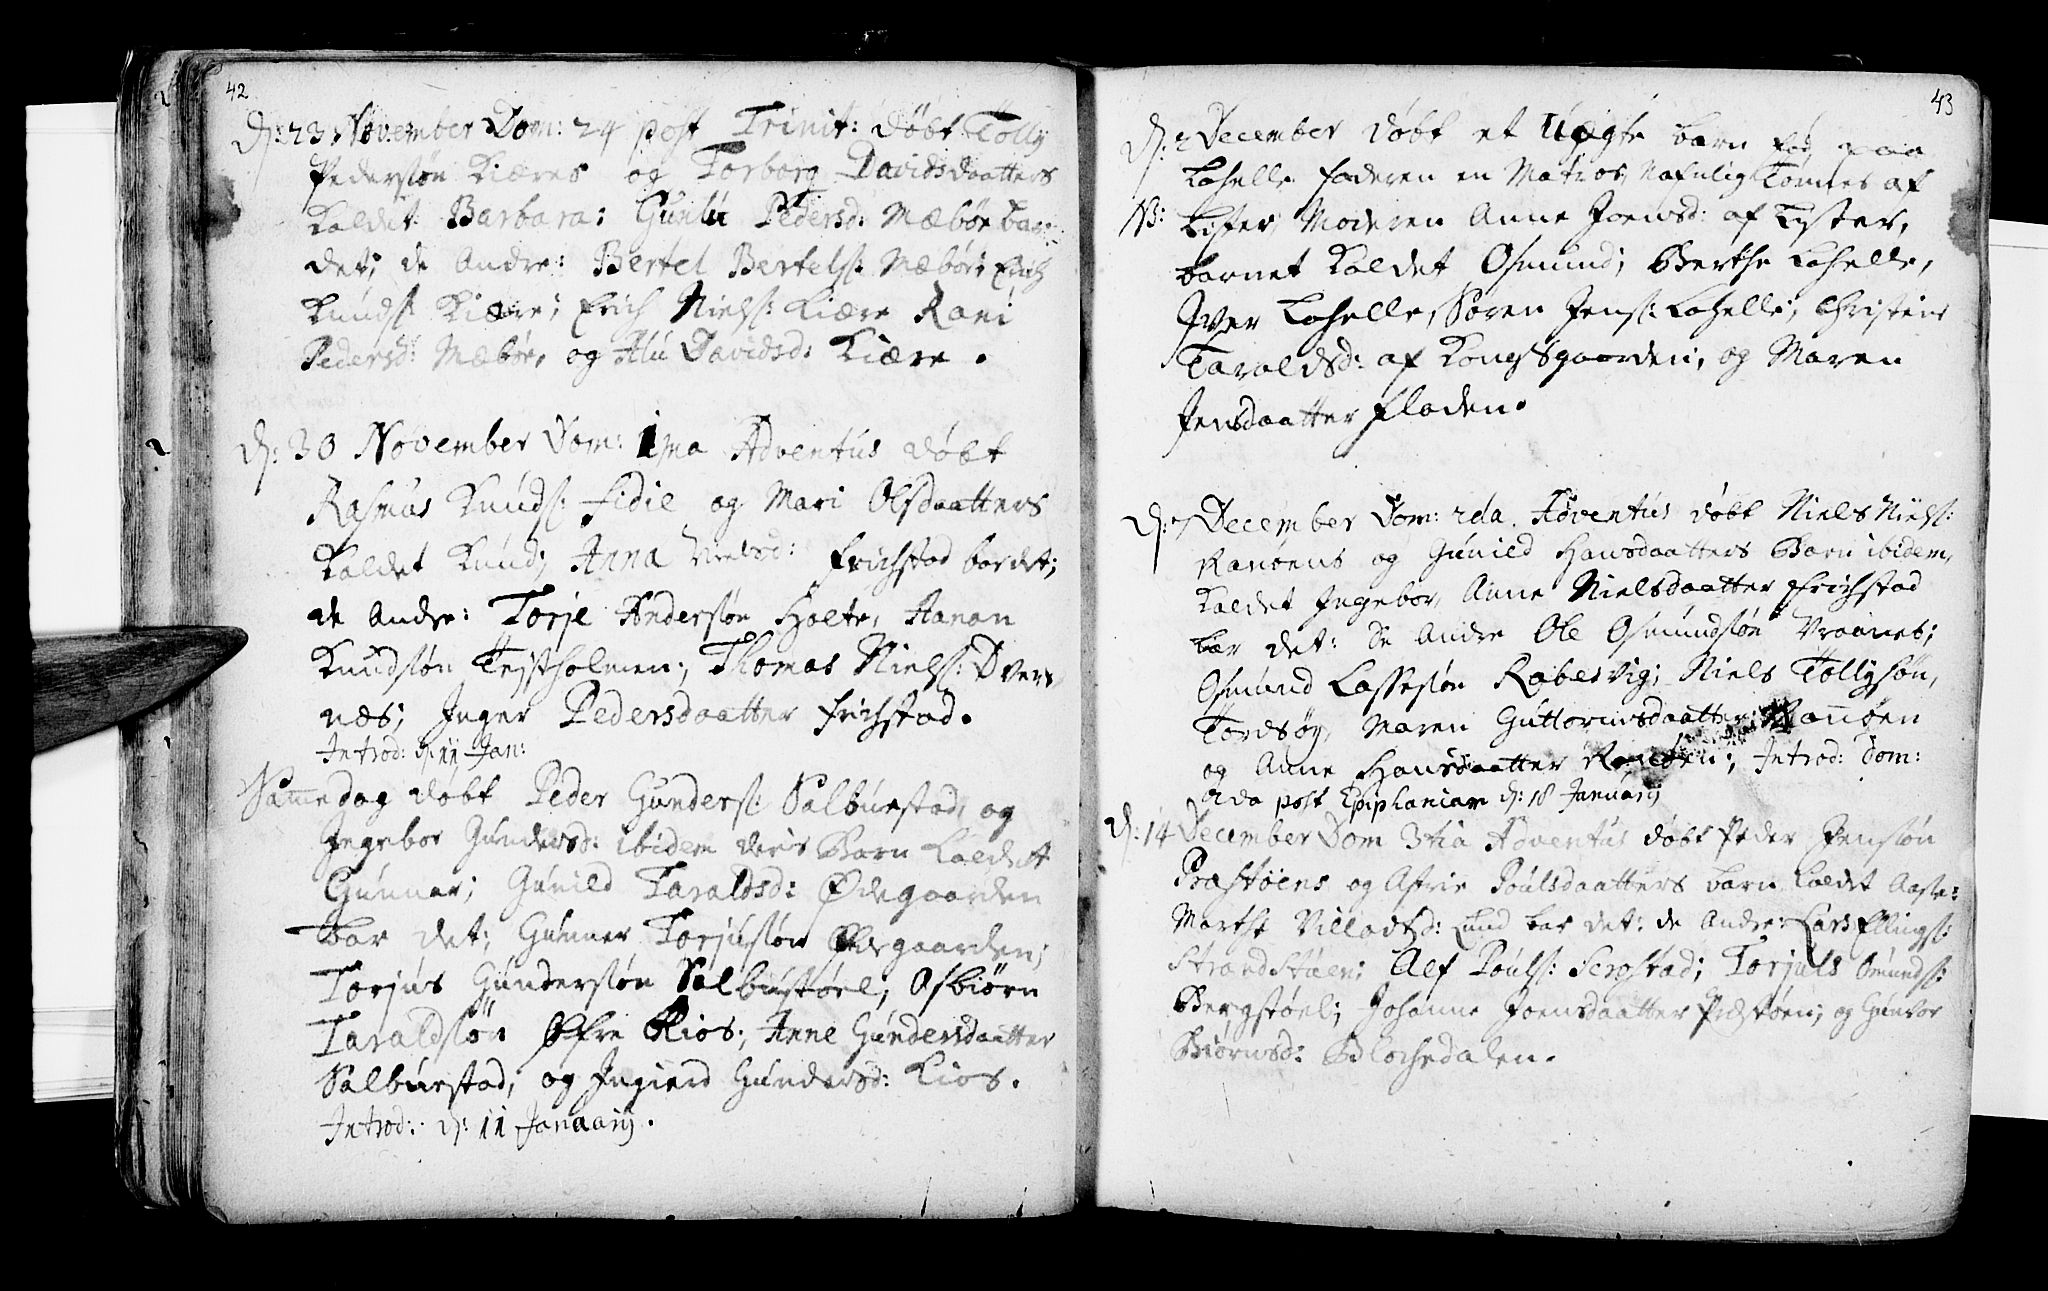 42
D: 23 November Dom: 24 post Trinit: döbt Tolly
Pedersøn Kiæres og Torborg Davidsdaatters
Kaldet Barbara; Gunlu Pedersd: Mæbøe bar
det; de Andre: Bertel Bertels: Mæbøe; Erich
Knuds: Kiære; Erich Niels: Kiære Rani
Pedersd: Mæbøe, og Alu Davidsd: Kiære.
D: 30 November Dom: 1ma Adventus döbt
Rasmus Knuds: Fidie og Mari Olsdaatters
Kaldet Knud; Anna Nielsd: Frichstad bar det;
de Andre: Torje Andersøn Holte, Aanon
Knudsøn Tejstholmen; Thomas Niels: Dver
næs; Inger Pedersdaatter Frichstad.
Introd: d: 11 Jan:
Samme dag döbt Peder Gunders: Salbuestad, og
Ingebor Gundersd: ibidem deris Barn Kaldet
Gunner; Gunild Taraldsd: Ødegaarden
bar det; Gunner Torjusøn Ødegaarden;
Torjus Gundersøn Salbustøel; Asbiørn
Taraldsøn Øfre Kios; Anne Gundersdaatter
Salbuestad, og Ingierd Gundersd: Kios.
Introd: d: 11 Januarij.
43
D: 2 December döbt et Uægte barn fød paa
Lahelle faderen en Matros Nafnlig Tönnes af
NB: Lister, Moderen Anne Joensd: af Lyster,
barnet Kaldet Osmund; Berthe Lahelle,
Iver Lahelle, Søren Jens: Lahelle; Christine
Taraldsd: af Kongsgaarden, og Maren
Jensdaatter Fladen.
D: 7 December Dom: 2da Adventus döbt Niels Niels:
Ranöens og Gunild Hansdaatters Barn ibidem,
Kaldet Ingebor, Anne Nielsdaatter Frichstad
bar det: De Andre Ole Osmundsøn Vraanes;
Osmund Lassesøn Rabesvig; Niels Tollysøn,
Tordsøy, Maren Guttormsdaatter Ranöen
og Anne Hansdaatter Ranöen; Introd: Dom:
2da post Epiphaniam d: 18 Januarij
D: 14 December Dom 3tia Adventus döbt Peder Jensøn
Præstöens og Asfrie Poulsdaatters barn Kaldet Aaste:
Marthe Villadsd: Lund bar det: de Andre: Lars Ellings:
Strandstöen; Alef Pouls: Serostad; Torjuls Omunds:
Bergstøel; Johanne Joensdaatter Præstöen; og Gunvor
Biörnsd: Blochedalen.